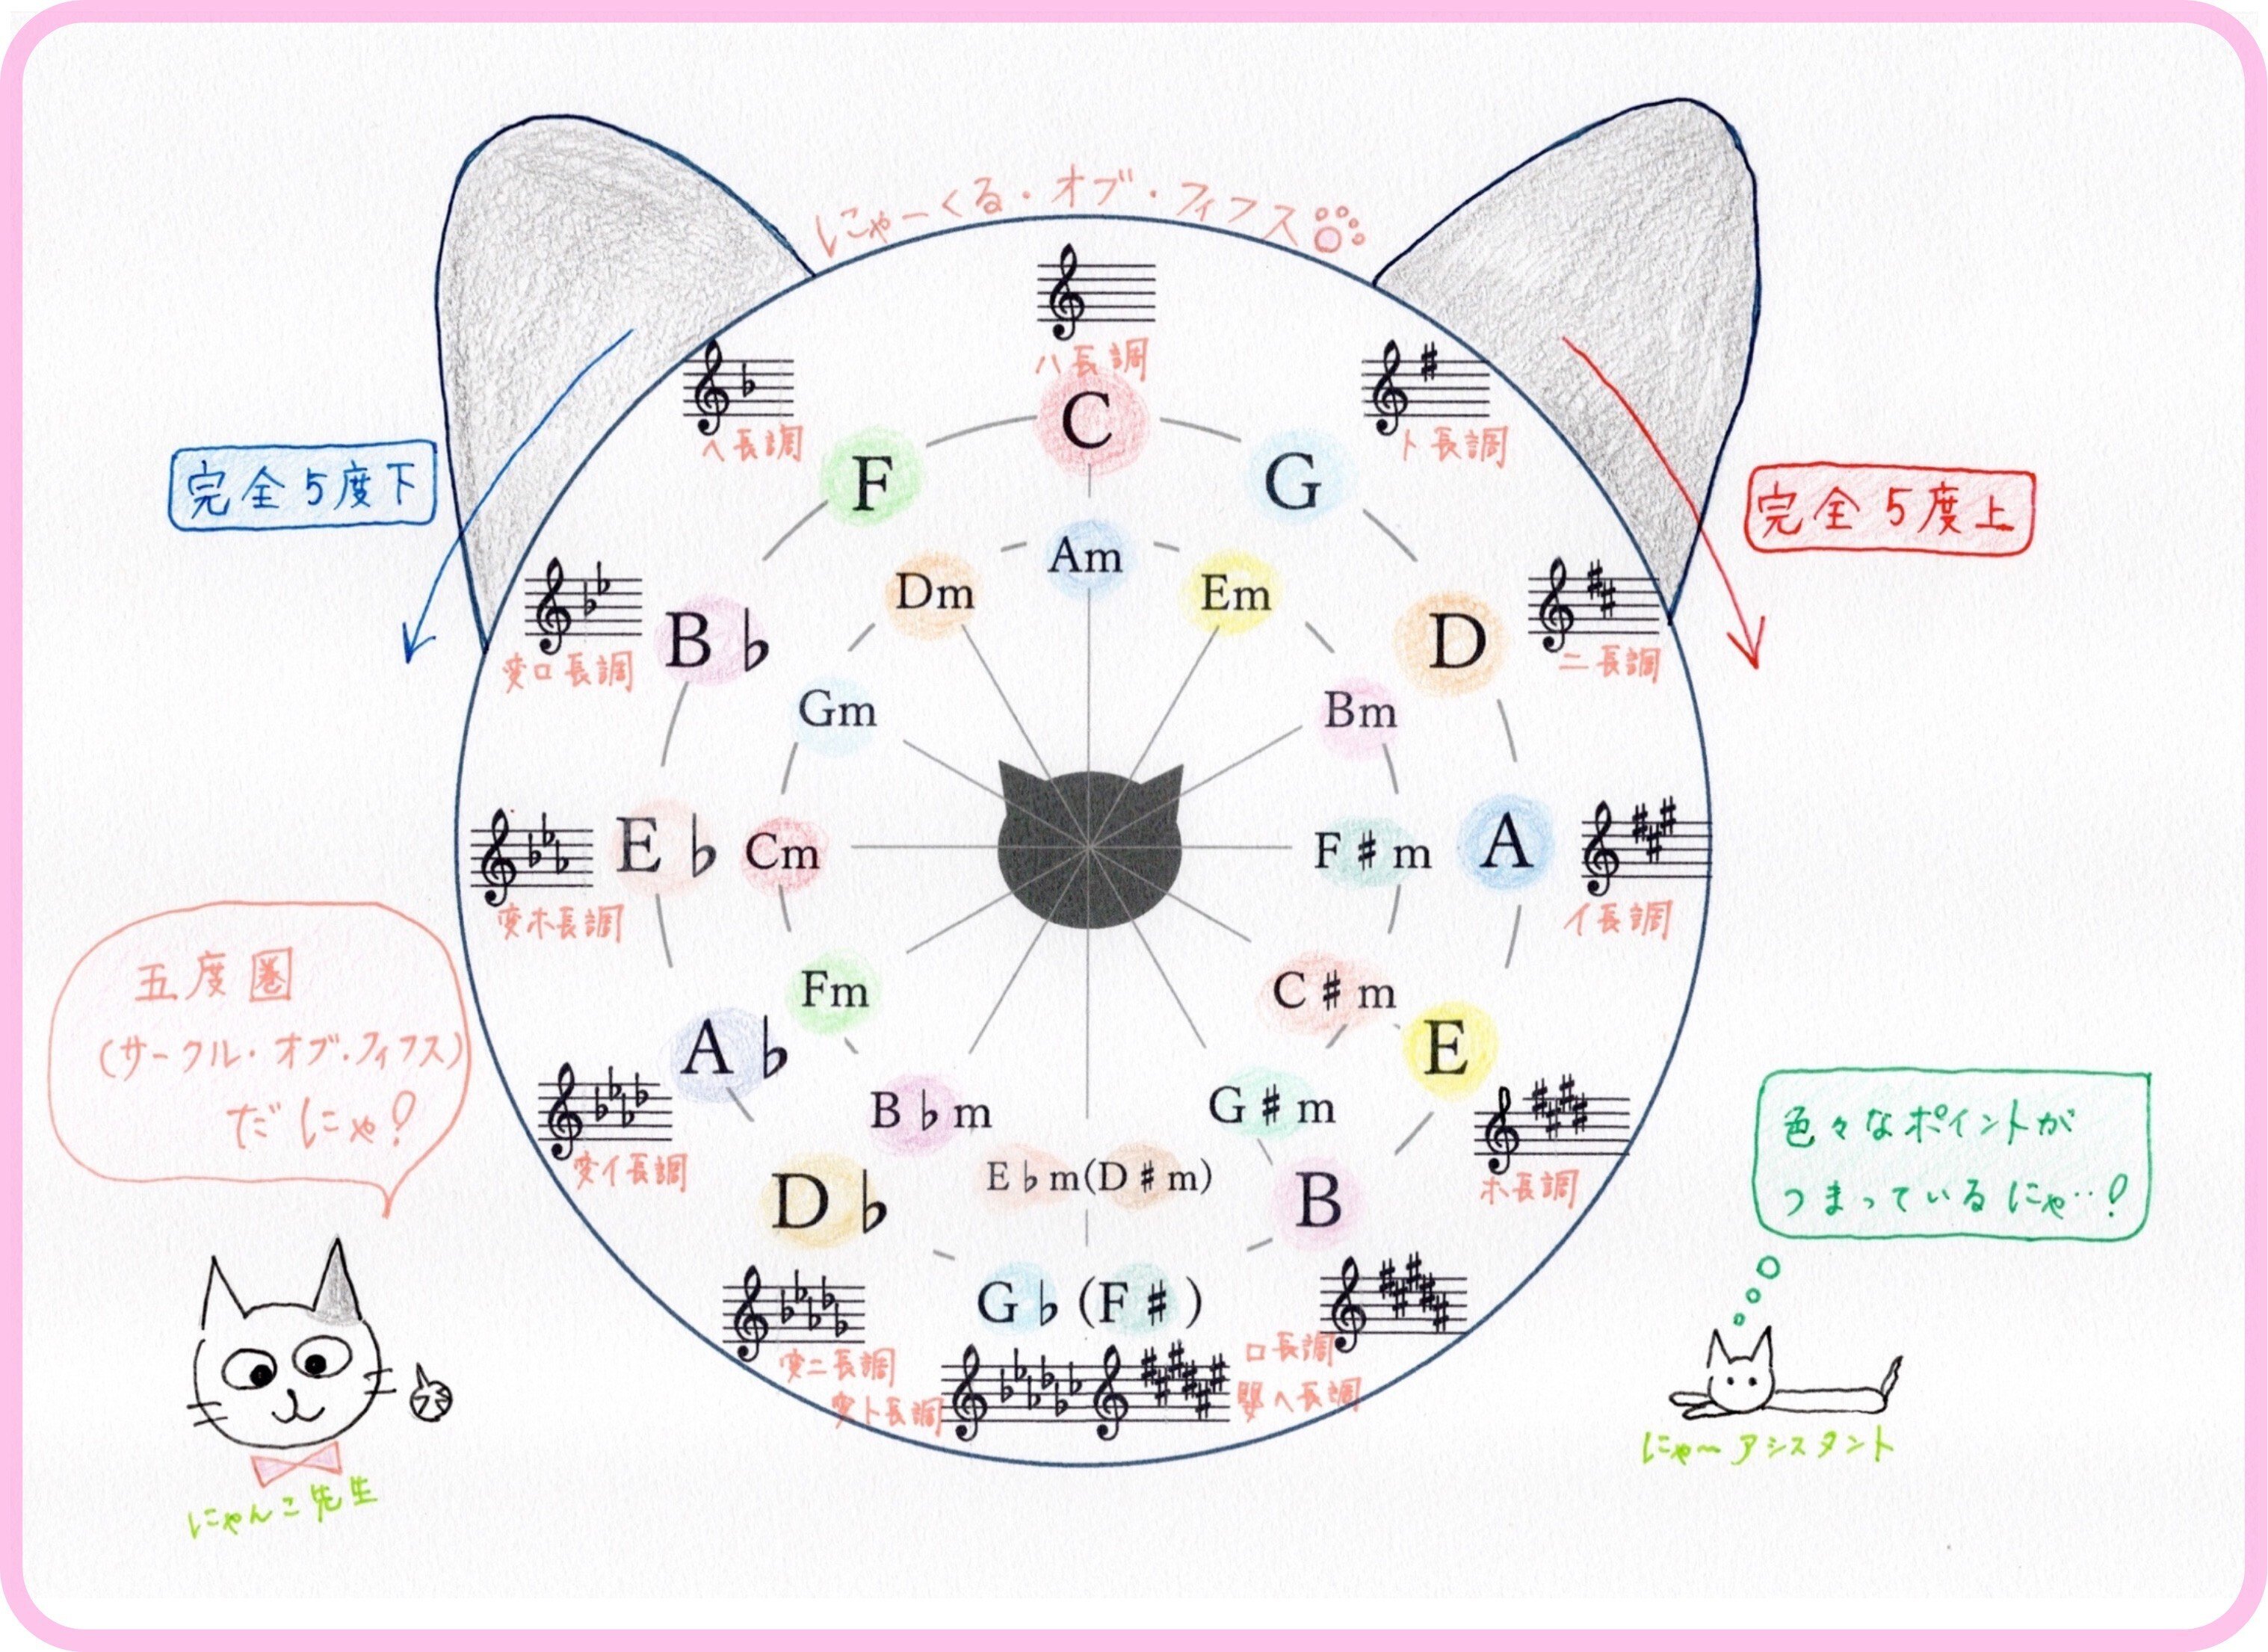 にゃーくる・オブ・フィフス
ハ長調
C
Am
ト長調
G
Em
完全5度上
ニ長調
D
Bm
イ長調
A
F♯m
ホ長調
E
C♯m
ロ長調
B
G♯m
嬰ヘ長調
変ト長調
G♭(F♯)
E♭m(D♯m)
変ニ長調
D♭
B♭m
変イ長調
A♭
Fm
変ホ長調
E♭
Cm
変ロ長調
B♭
Gm
ヘ長調
F
Dm
完全5度下
五度圏
(サークル・オブ・フィフス)
だにゃ!
にゃんこ先生
色々なポイントが
つまっているにゃ‥!
にゃ〜アシスタント